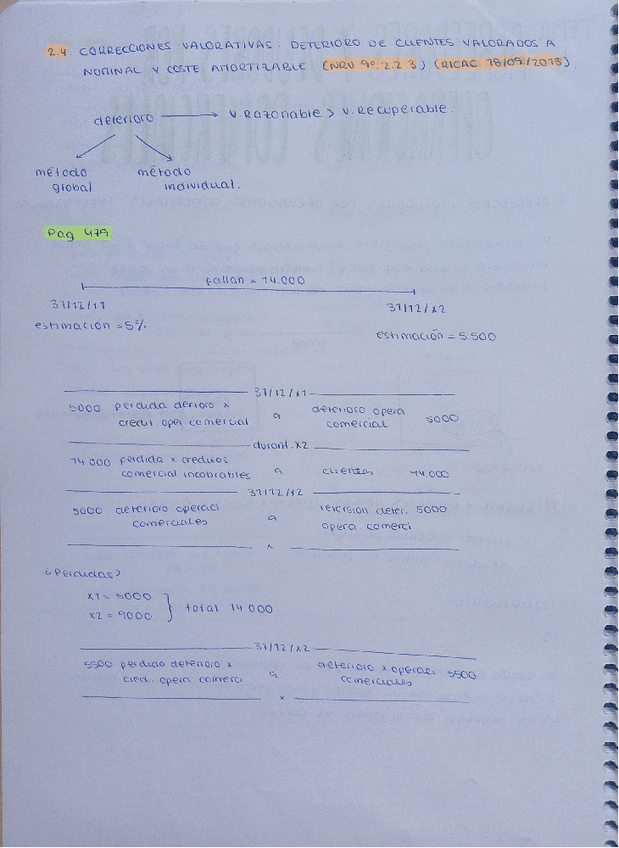 2.4 CORRECCIONES VALORATIVAS. DETERIORO DE CLIENTES VALORADOS A
NOMINAL Y COSTE AMORTIZABLE (NRV 9º. 2.2 3) (RICAC 18/09/2013).
deterioro → V. Razonable > V. Recuperable.
método global
método individual.
Pag 479
fallan = 14.000
31/12/x1
31/12/x2
estimación = 5%
estimación = 5.500
31/12/x1
5000 perdida derioro x a deterioro opera 5000
credit. oper comercial comercial
durant. x2
14.000 perdida x creditos
comercial incobrables a clientes 14.000
31/12/x2
5000 deterioro operaci a reversion deter. 5000
comerciales opera. comerci
x
¿Perdidas?
x1 = 5000
x2 = 9000 } total 14 000
31/12/x2
5500 perdida deterioro x a deterioro x operaci. 5500
cred. opera comerci comerciales
x